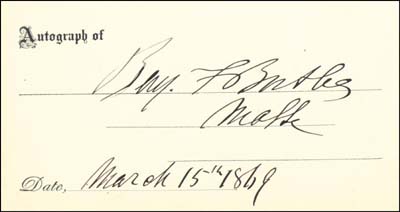 Autograph of
Benj. F Butler
Mass
Date, March 15th 1869